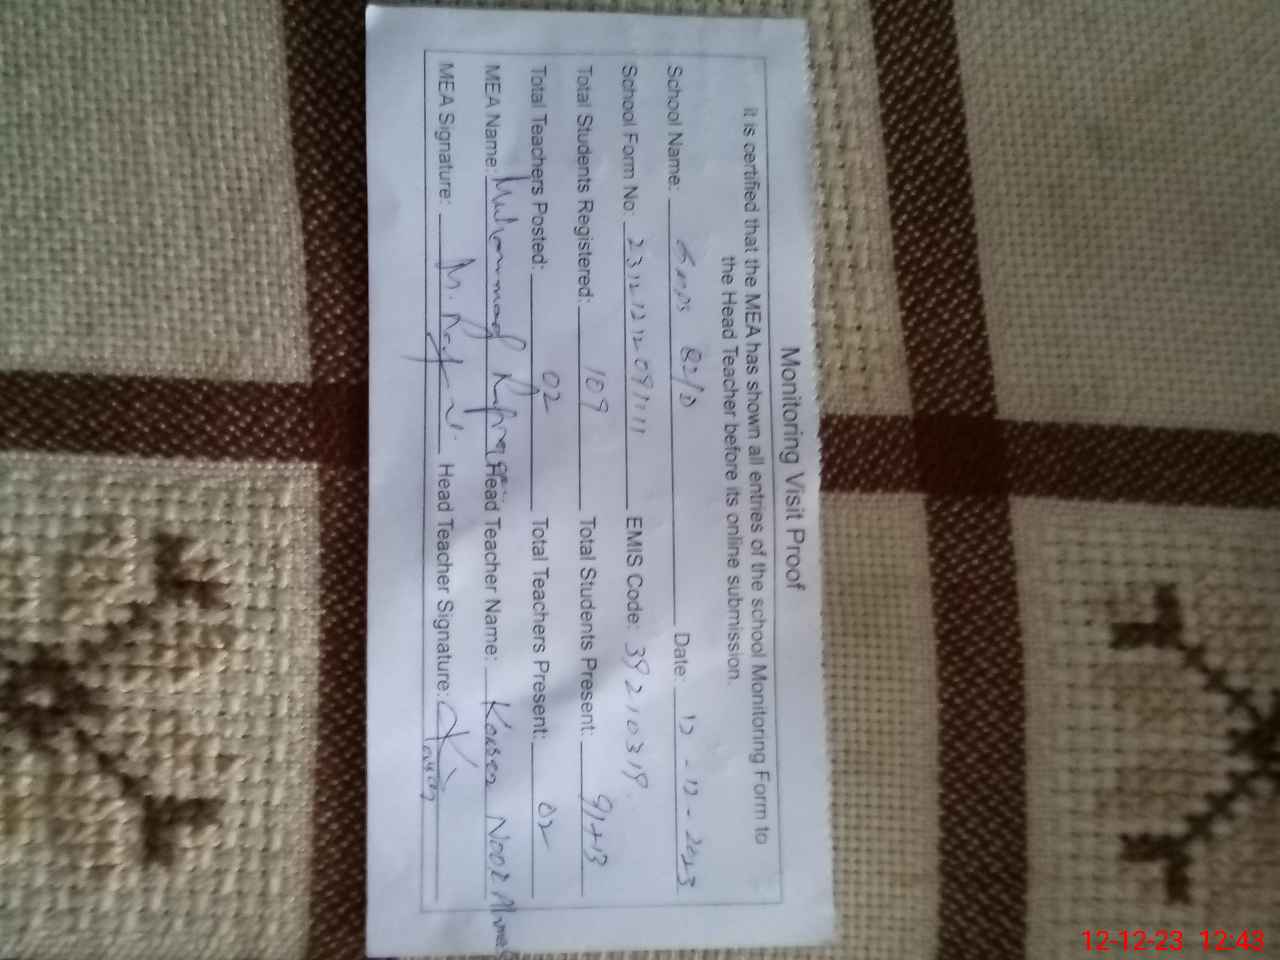 Monitoring Visit Proof
it is certified that the MEA has shown all entries of the school Monitoring Form to
the Head Teacher before its online submission.
School Name: Gmps 82/D Date: 12-12-2023
School Form No: EMIS Code: 39210319
Total Students Registered: 109 Total Students Present: 91+13
Total Teachers Posted: 02 Total Teachers Present: 02
MEA Name: Muhammad Head Teacher Name: Noor Ahmed
MEA Signature: Head Teacher Signature:
12-12-23 12:43